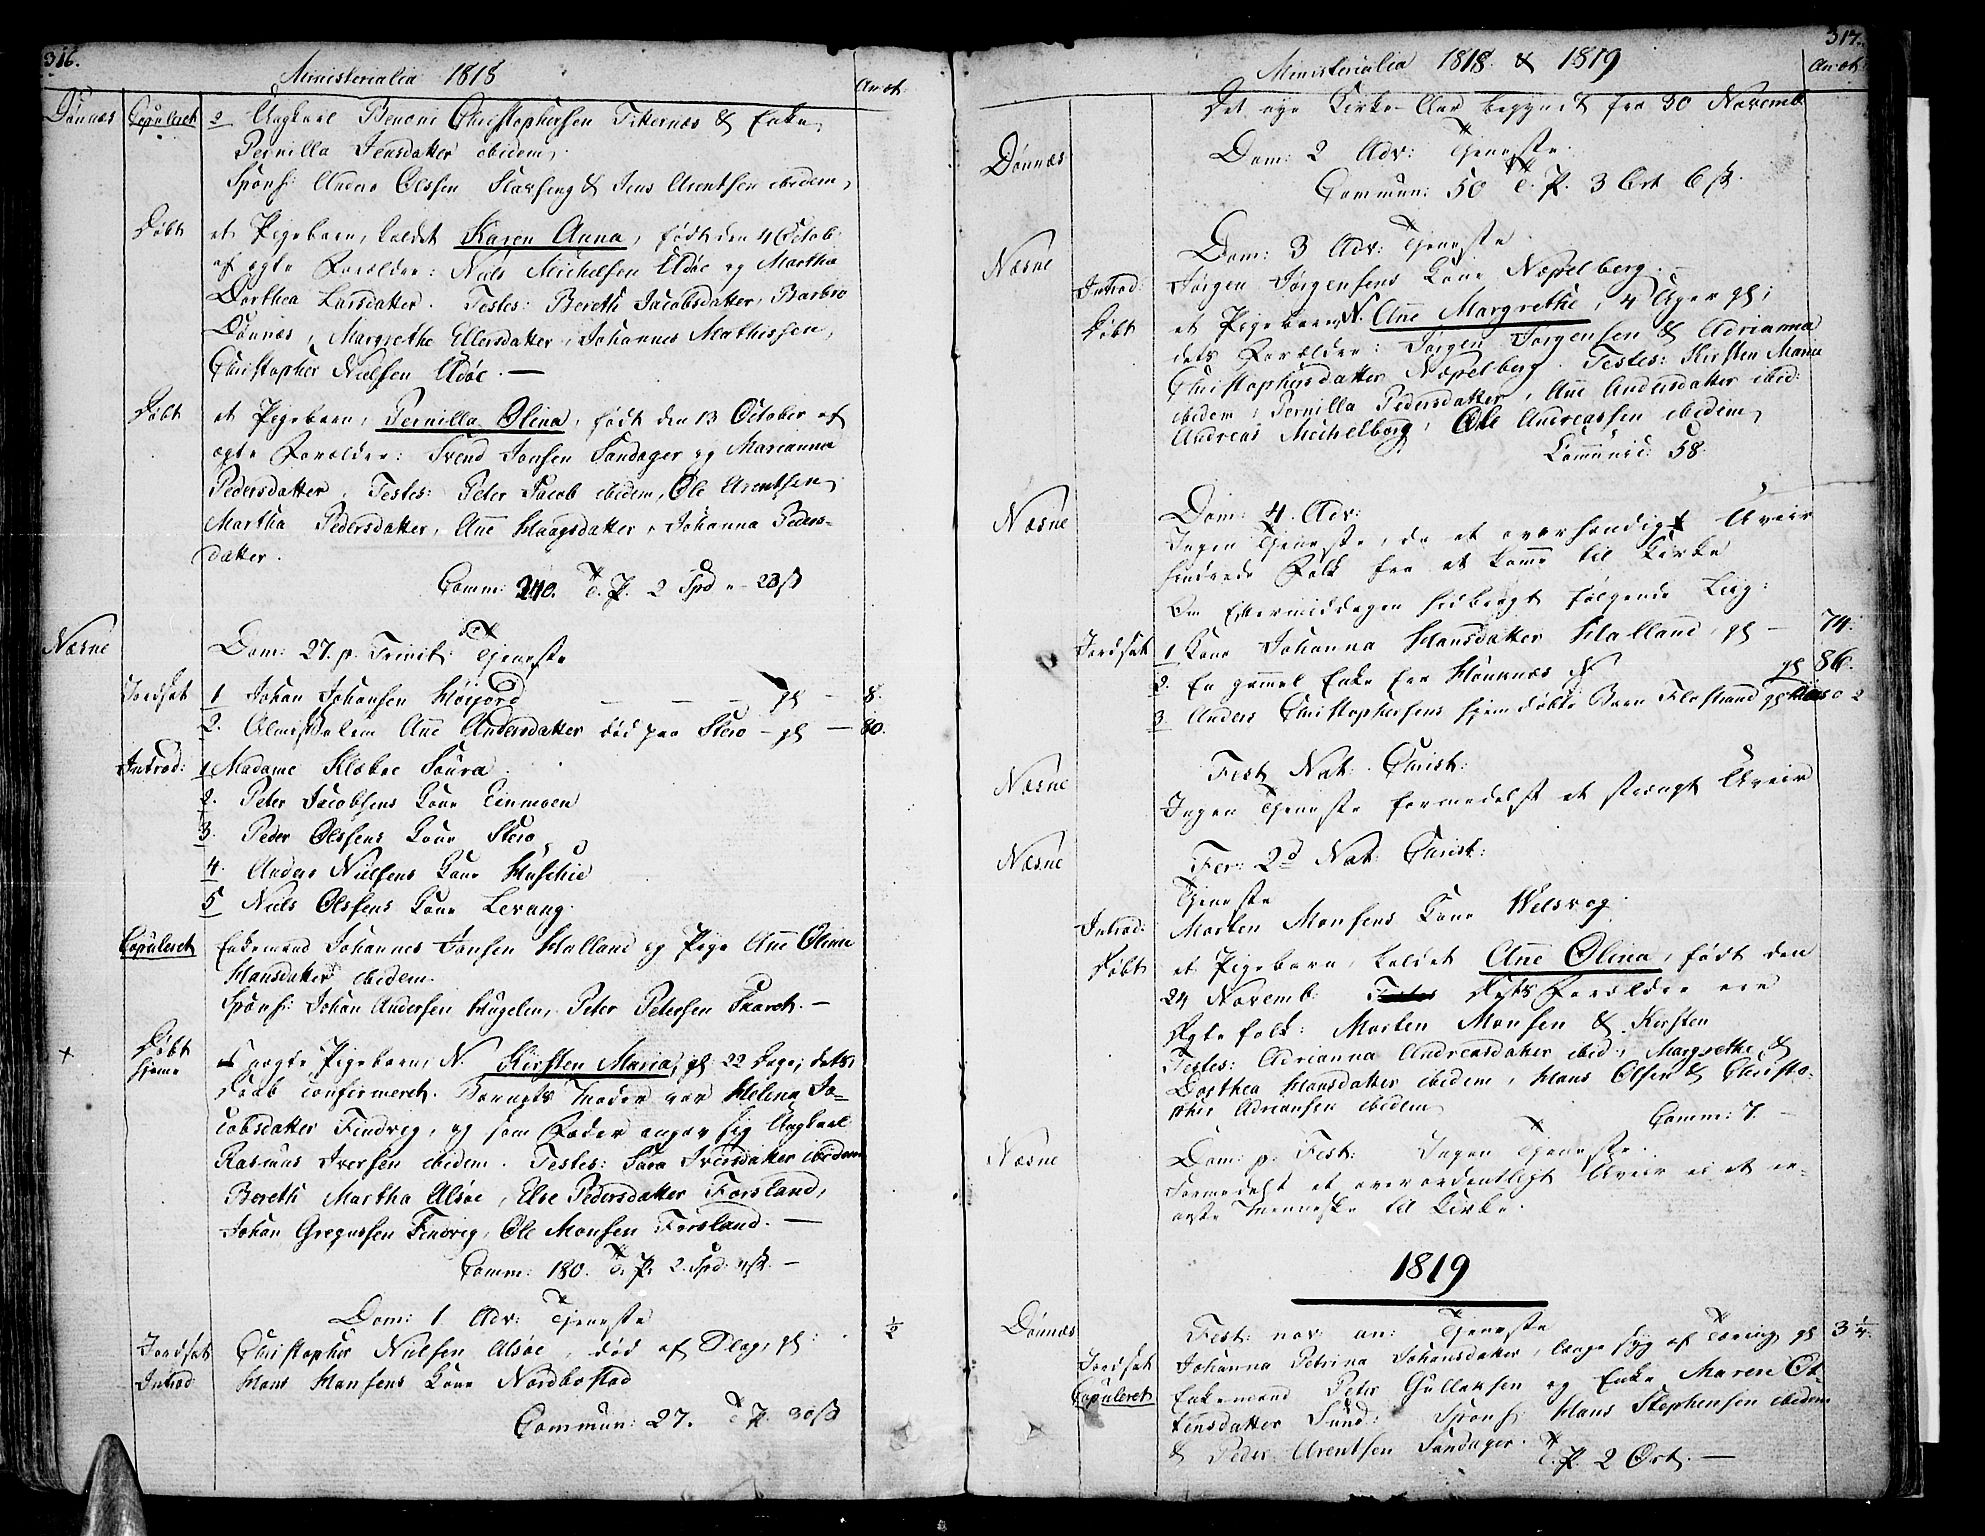 316.
Ministerialia 1818
An: æt:
Dönnæs
Copuleret
2 Ungkarl Benoni Christophersen Titternæs & Enke
Pernilla Jensdatter ibidem,
Spons: Anders Olssen Slavseng & Jens Arentsen ibedem,
Döbt
et Pigebarn, kaldet Karen Anna, födt den 4 Octob:
af ægte Forældre: Niels Michelsen Alsöe og Martha
Dorthea Larsdatter. Testes: Bereth Jacobsdatter, Barbro
Dönnæs, Margrethe Ellersdatter, Johannes Mathissen,
Christopher Nielsen Alsöe. —
Döbt
et Pigebarn, Pernilla Olina, födt den 13 October af
ægte Forældre: Svend Jonsen Sandager og Marianna
Pedersdatter. Testes: Peter Jacob ibidem, Ole Arentsen,
Martha Pedersdatter, Ane Haagsdatter, Johanna Peders-
datter.
Comm: 240. T. P. 2 Spd " 23 ß
Næsne
Dom: 27. p. Trinit: Tjeneste
Jordfæst
1 Johan Johansen Höijord — — — gl — 8.
2. Almisselem Ane Andersdatter död paa Stero — gl — 80.
Introd:
1 Madame Saura.
2. Peter Jacobsens Kone Einmoen
3. Peder Olssens Kone Stero
4. Anders Nielsens Kone Husebie
5 Niels Olssens Kone Levang.
Copuleret
Enkemand Johannes Jonsen Halland og Pige Ane Olina
Hansdatter ibidem.
Spons: Johan Andersen Hugelen, Peter Petersen Skaret. —
+
Döbt
hjeme
et uægte Pigebarn, N. Kirsten Maria, gl: 22 Dage; dets
Daab confirmeret. Barnets Moder var Helena Ja-
cobsdatter Findvig, og som Fader angav sig Ungkarl
Rasmus Iversen ibidem. Testes: Sara Iversdatter ibidem
Bereth Martha Alsöe, Else Pedersdatter Forsland,
Johan Gregussen Findvig, Ole Monsen Forsland. —
Comm: 180. T. P. 2. Spd. —
Dom: 1 Adv: Tjeneste
Jordfæst
Christopher Nielsen Alsöe, död af Slag, gl: ½
Introd
Hans Hansens Kone Nordbostad
Commun: 27. T. P. 30 ß
317.
Ministerialia 1818. & 1819
An: æt:
Det nye Kirke Aar begyndt fra 30 Novemb
Dönnæs
Dom: 2 Adv: Tjeneste.
Commun: 50 T. P. 3 Ort 6 sk.
Næsne
Dom: 3 Adv: Tjeneste.
Introd:
Jörgen Jörgensens Kone Næpelberg.
Döbt
et Pigebarn N. Ane Margrethe, 4 Uger gl;
dets Forældre: Jörgen Jörgensen & Adrianna
Christophersdatter Næpelberg. Testes: Kirsten Maria
ibidem, Pernilla Pedersdatter, Ane Andersdatter ibid:
Andreas Michelborg, Ole Andreassen ibidem,
Communic: 58.
Næsne
Dom: 4. Adv:
Ingen Tjeneste, da et overhændigt Uveir
hindrede Folk fra at kome til Kirke
Om Eftermiddagen hidbragt fölgende Liig:
Jordfæst
1 Kone Johanna Hansdatter Halland, gl — 74.
2. En gammel Enke fra Hounæs N gl 86.
3. Anders Christophersens hjemdöbte Barn Flostrand gl
Næsne
Fest Nat: Christ:
Ingen Tjeneste formedelst et strængt Uveir
Næsne
Fer: 2d Nat: Christ:
Tjeneste
Introd:
Morten Monsens Kone Welsvog.
Döbt
et Pigebarn, kaldet Ane Olina, födt den
24 Novemb: dets Forældre ere
Ægtefolk: Morten Monsen & Kirsten
Testes: Adrianna Andreasdatter ibid:, Margrethe &
Dorthea Hansdatter ibidem, Hans Olsen & Christo-
pher Adriansen ibidem
Comm: 7 —
Næsne
Dom: p. Fest: Ingen Tjeneste.
Formedelst et overordentligt Uveir ei et e-
neste Menneske til Kirke.
1819
Dönnæs
Fest: nov: an: Tjeneste
Jordfæst
Johanna Petrina Johansdatter, længe syg af Tæring gl 3 ¼.
Copuleret
Enkemand Peter Gullaksen og Enke Maren Ot-
tensdatter Sund: Spons: Hans Stephensen ibidem
& Peder Arentsen Sandager. T. P. 2 Ort. —